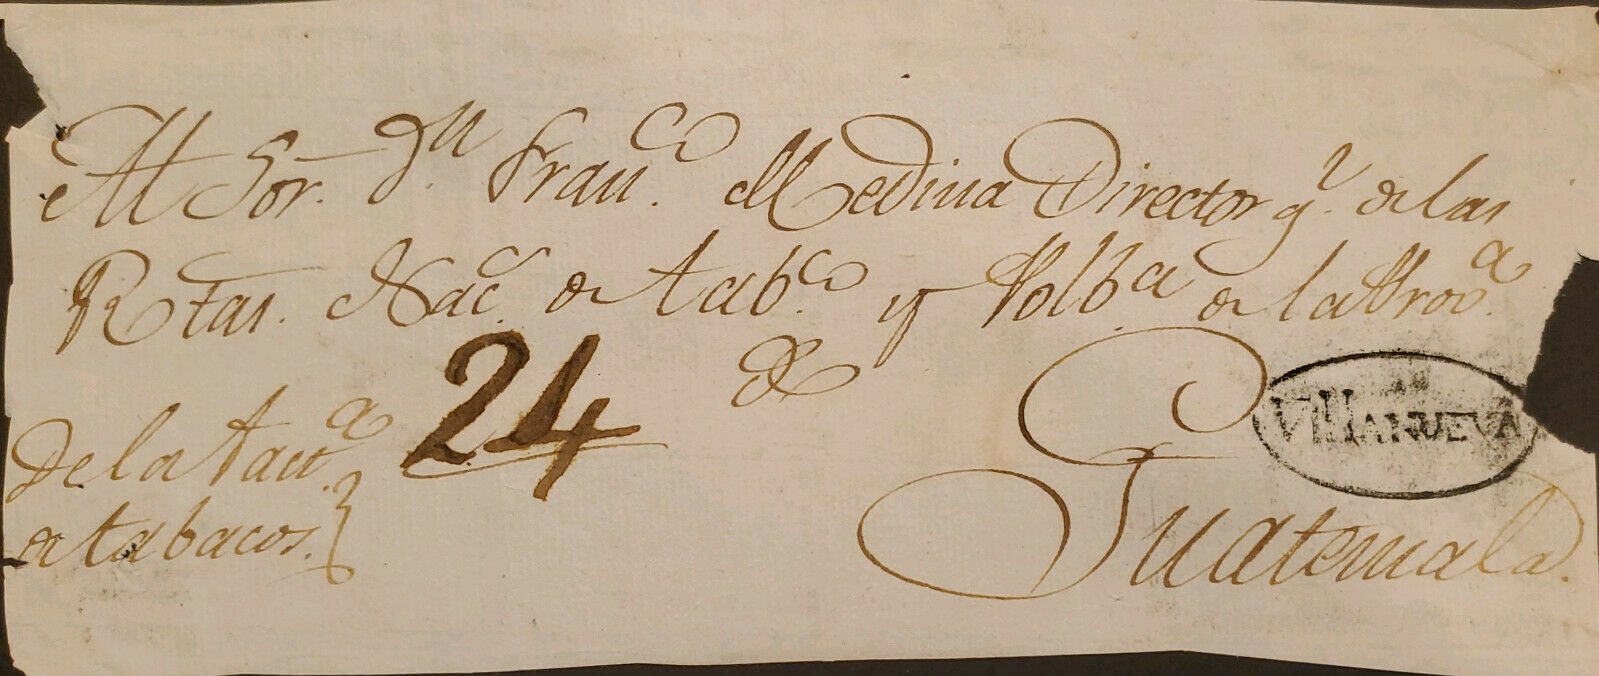 Al Sor. Dn. Franco. Medina Director gl. de las
Rtas. Nacs. de tabco. y Polba. de la Prova.
de
24
VILLANUEVA
De la Facta.
de tabacos.
Guatemala.